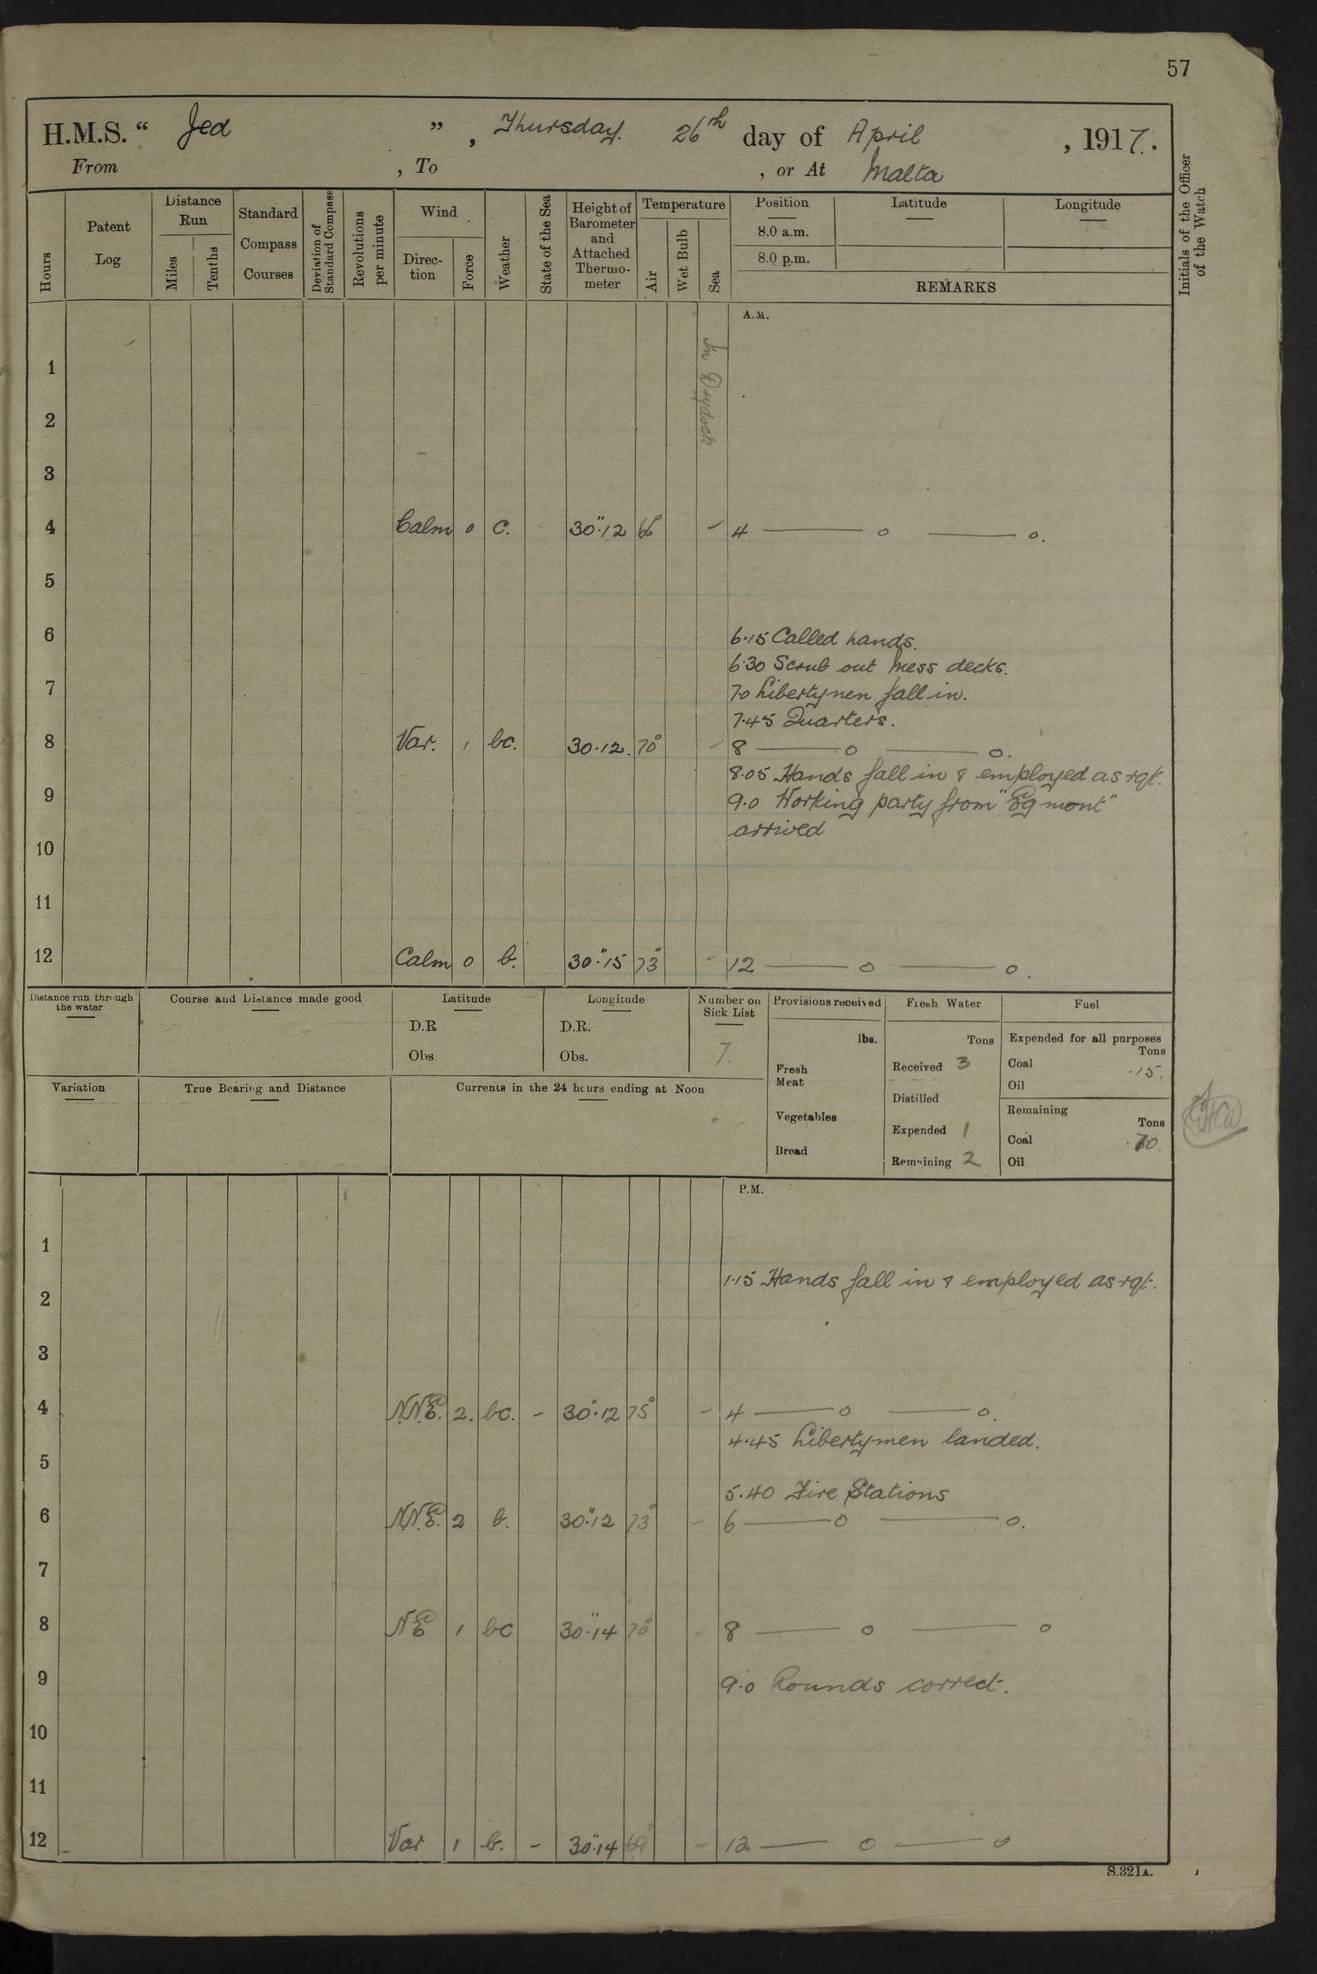 57
H.M.S. “ Jed ” , Thursday. 26th day of April , 1917.
From , To , or At Malta
Hours
Patent Log
Distance Run
Miles
Tenths
Standard Compass Courses
Deviation of Standard Compass
Revolutions per minute
Wind
Direction
Force
Weather
State of the Sea
Height of Barometer and Attached Thermometer
Temperature
Air
Wet Bulb
Sea
Position
8.0 a.m.
8.0 p.m.
Latitude
Longitude
REMARKS
Initials of the Officer of the Watch
A.M.
In Drydock
1
2
3
4 Calm 0 c. 30".12 66° - 4 —— o —— o.
5
6
6.15 Called hands.
6.30 Scrub out mess decks.
7
7.0 Libertymen fall in.
7.45 Quarters.
8 Var. 1 bc. 30.12. 70° - 8 —— o —— o.
8.05 Hands fall in & employed as rqt.
9
9.0 Working party from "Egmont"
arrived
10
11
12 Calm 0 b. 30".15 73° - 12 —— o —— o.
Distance run through the water
Course and Distance made good
Latitude
D.R
Obs.
Longitude
D.R.
Obs.
Number on Sick List
7.
Provisions received
lbs.
Fresh Meat
Vegetables
Bread
Fresh Water
Tons
Received 3
Distilled
Expended 1
Remaining 2
Fuel
Expended for all purposes
Tons
Coal .15.
Oil
Remaining
Tons
Coal 70.
Oil
Variation
True Bearing and Distance
Currents in the 24 hours ending at Noon
P.M.
1
1.15 Hands fall in & employed as rqt.
2
3
4 N.N.E. 2. bc. - 30".12 75° - 4 —— o —— o.
4.45 Libertymen landed.
5
5.40 Fire Stations
6 N.N.E. 2 b. 30".12 73° - 6 —— o —— o.
7
8 NE 1 bc 30".14 70° - 8 —— o —— o
9
9.0 Rounds correct.
10
11
12 Var 1 b. - 30".14 69° - 12 —— o —— o
S.321A.